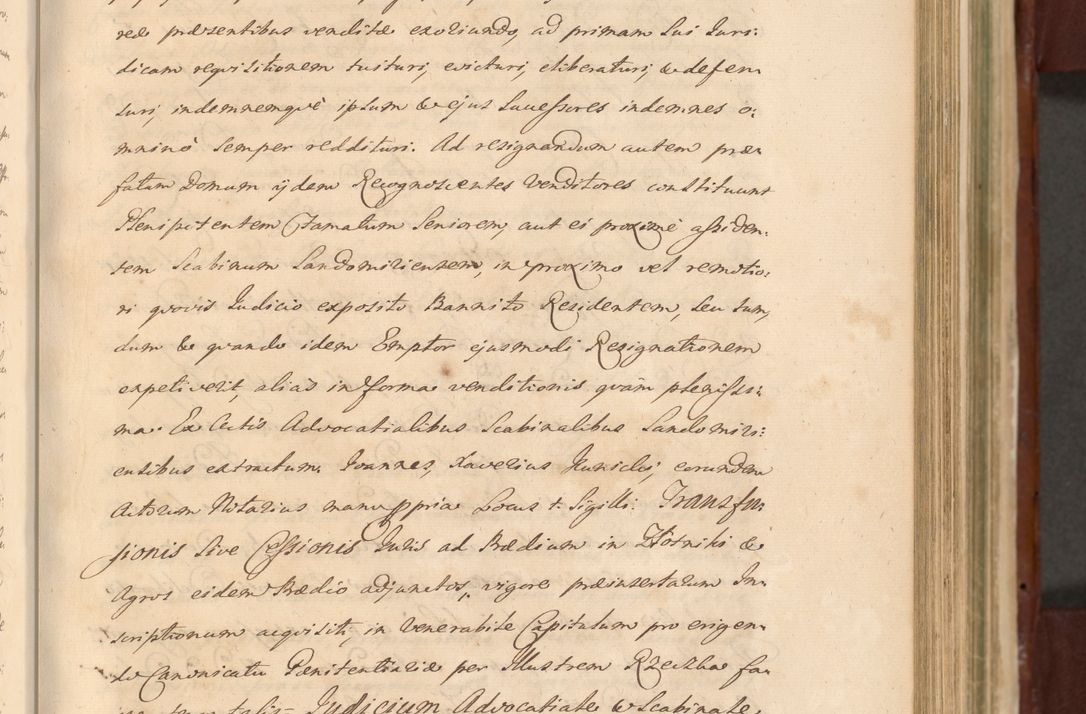 redo præsentibus venditæ exoriundo, ad primam Sui Juri:
dicam requisitionem tuituri, evicturi, eliberaturi, & defen
suri, indemnemquè ipsum & ejus Successores indemnes o:
mninò Semper reddituri. Ad resignandum autem præ:
fatam Domum ijdem Recognoscentes Venditores constituunt
Plenipotentem Famatum Seniorem, aut ei proximè assiden:
tem Scabinum Sandomiriensem, in proximo vel remotio:
ri quovis Judicio exposito Bannito Residentem, Seu tum,
dum & quando idem Emptor ejusmodi Resignationem
expetiverit, aliàs in forma venditionis quàm plenissi:
ma. Ex Actis Advocatialibus Scabinalibus Sandomiri:
ensibus extractum. Joannes, Xaverius eorundem
Actorum Notarius manu ppria Locus + Sigilli. Transfu
sionis Sive Cessionis Juris ad Prædium in Złotniki &
Agros eidem Prædio adjunctos, vigore præinsertarum In:
scriptionum acquisiti, in Venerabile Capitulum pro erigen:
do Canonicatu Pænitentiariæ per Illustrem Rzeczka fa:
talis Judicium Advocatiale & Scabinale